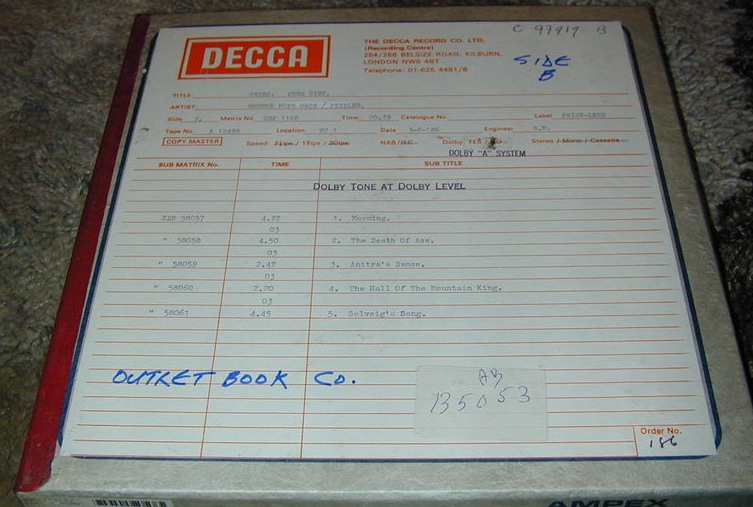 C 97919 B
SIDE
B
DECCA
THE DECCA RECORD CO. LTD,
(Recording Centre)
254/258 BELSIZE ROAD, KILBURN,
LONDON NW6 4BT
Telephone: 01-625 4481/8
TITLE: GRIEG: PEER GYNT.
ARTIST: BOSTON POPS ORCH / FIEDLER.
Side 2. Matrix No. Time 20.39 Catalogue No. Label PRICE-LESS
Tape No. A 12488 Location TC 1 Date Engineer
COPY MASTER Speed: 7½ips / 15ips / 30ips NAB/IEC Dolby: YES/NO Stereo / Mono / Cassette
DOLBY "A" SYSTEM
SUB MATRIX No. TIME SUB TITLE
DOLBY TONE AT DOLBY LEVEL
58057 4.27 1. Morning.
03
" 58058 4.50 2. The Death Of Ase.
03
" 58059 2.42 3. Anitra's Dance.
03
" 58060 2.20 4. The Hall Of The Mountain King.
03
" 58061 4.45 5. Solveig's Song.
OUTLET BOOK CO.
AB
135053
Order No.
186
AMPEX